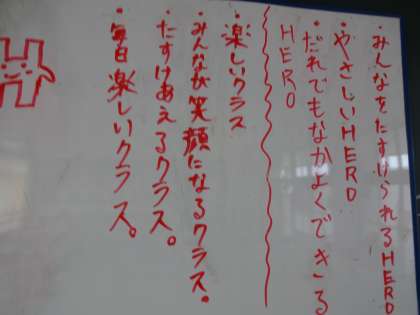 ・みんなをたすけられるHERO
・やさしいHERO
・だれでもなかよくできる
HERO
・楽しいクラス
・みんなが笑顔になるクラス。
・たすけあえるクラス。
・毎日楽しいクラス。